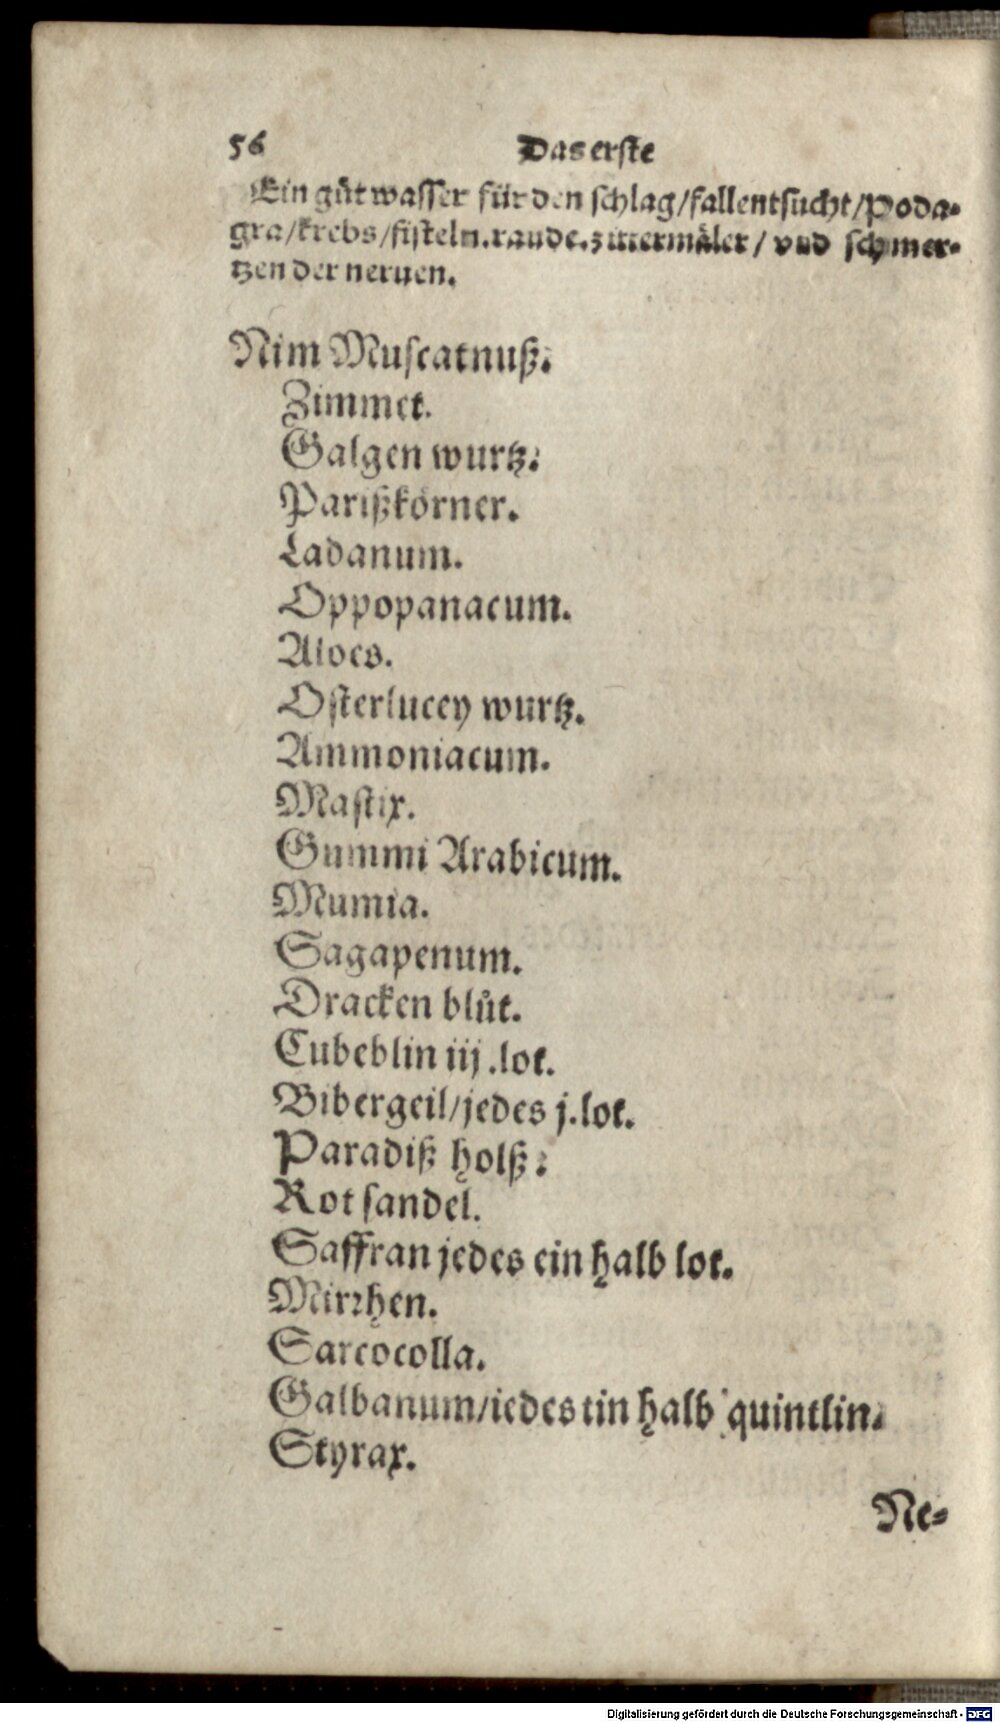 56 Das erste
Ein gůt wasser für den schlag/fallentsucht/Poda-
gra/krebs/fisteln.raude.zittermäler/ vnd schmer-
tzen der neruen.
Nim Muscatnuß.
Zimmet.
Galgen wurtz.
Parißkörner.
Ladanum.
Oppopanacum.
Aloes.
Osterlucey wurtz.
Ammoniacum.
Mastix.
Gummi Arabicum.
Mumia.
Sagapenum.
Dracken blůt.
Cubeblin iij.lot.
Bibergeil/jedes j.lot.
Paradiß holtz.
Rot sandel.
Saffran jedes ein halb lot.
Mirrhen.
Sarcocolla.
Galbanum/iedes ein halb quintlin.
Styrax.
Ne-
Digitalisierung gefördert durch die Deutsche Forschungsgemeinschaft - DFG